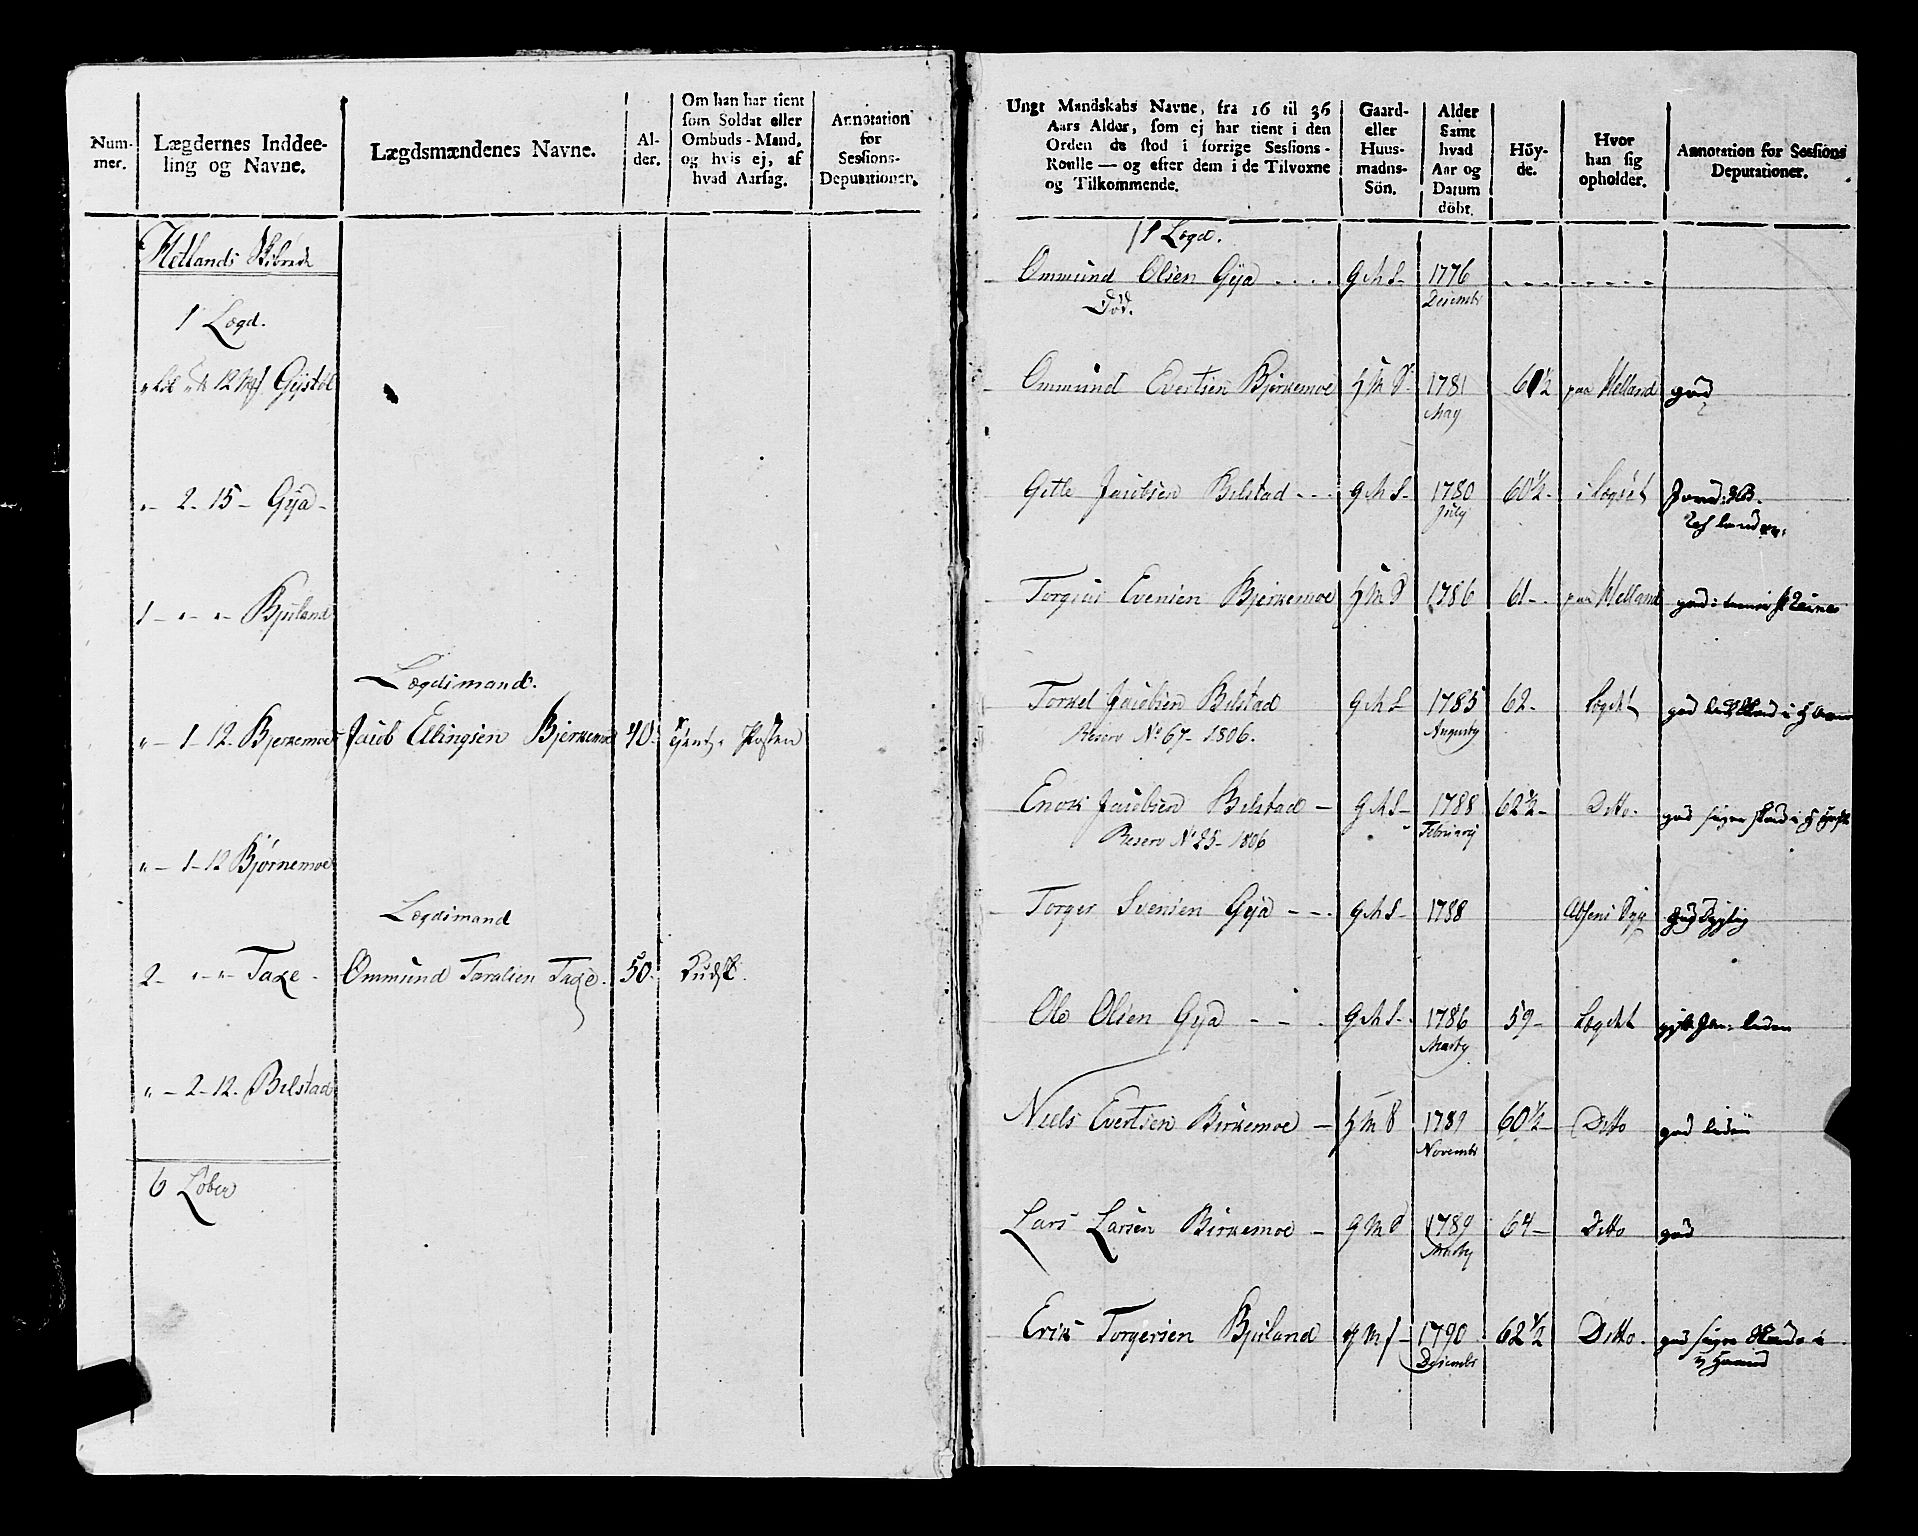 Num-
mer.
Lægdernes Inddee-
ling og Navne.
Lægdsmændenes Navne.
Al-
der.
Om han har tient
som Soldat eller
Ombuds-Mand,
og hvis ej, af
hvad Aarsag.
Annotation
for
Sessions-
Deputationen.
Hellands Skibrede
1 Lægd.
12 Gystøl
" 2 - 15 - Gya -
1 - " - " - Bjuland
Lægdsmand.
" - 1 - 12. Bjerkemoe Jacob Ellingsen Bjerkemoe 40.
" - 1 - 12 Bjørnemoe
Lægdsmand
2 - " - " - Taxe - Ommund Taralsen Taxe. 50.
" - 2 - 12. Bilstad
6 Løber
Ungt Mandskabs Navne, fra 16 til 36
Aars Alder, som ej har tient i den
Orden de stod i forrige Sessions-
Roulle — og efter dem i de Tilvoxne
og Tilkommende.
Gaard-
eller
Huus-
madns-
Sön.
Alder
Samt
hvad
Aar og
Datum
döbt.
Höy-
de.
Hvor
han sig
opholder.
Annotation for Sessions
Deputationer.
1 Lægd.
Ommund Olsen Gya . . . . G M S - 1776
Død. Decembr
Ommund Evertsen Bjerkemoe H M S - 1781 61½ paa Helland god
May
Gitle Jacobsen Bilstad - - - G M S - 1780 60½ - i Lægdet
July
Torgius Evensen Bjerkemoe H M S 1786 61 - paa Helland god
Torkel Jacobsen Bilstad G M S 1785 62 - Lægdet god
Reserv No 67 - 1806. Augusty
Enok Jacobsen Bilstad - G M S - 1788 62½ - Ditto. god
Reserv No 25 - 1806 February
Torger Svensen Gya - - . G M S - 1788
Ole Olsen Gya - - . G M S - . 1786 59 - Lægdet
Marty
Niels Evertsen Birkemoe - H M S 1789 60½ - Ditto god liden
Novembr
Lars Larsen Birkemoe - G M S 1789 64 - Ditto god
Marty
Erik Torgersen Bjuland G M S - 1790 62½ Ditto. god
Decembr